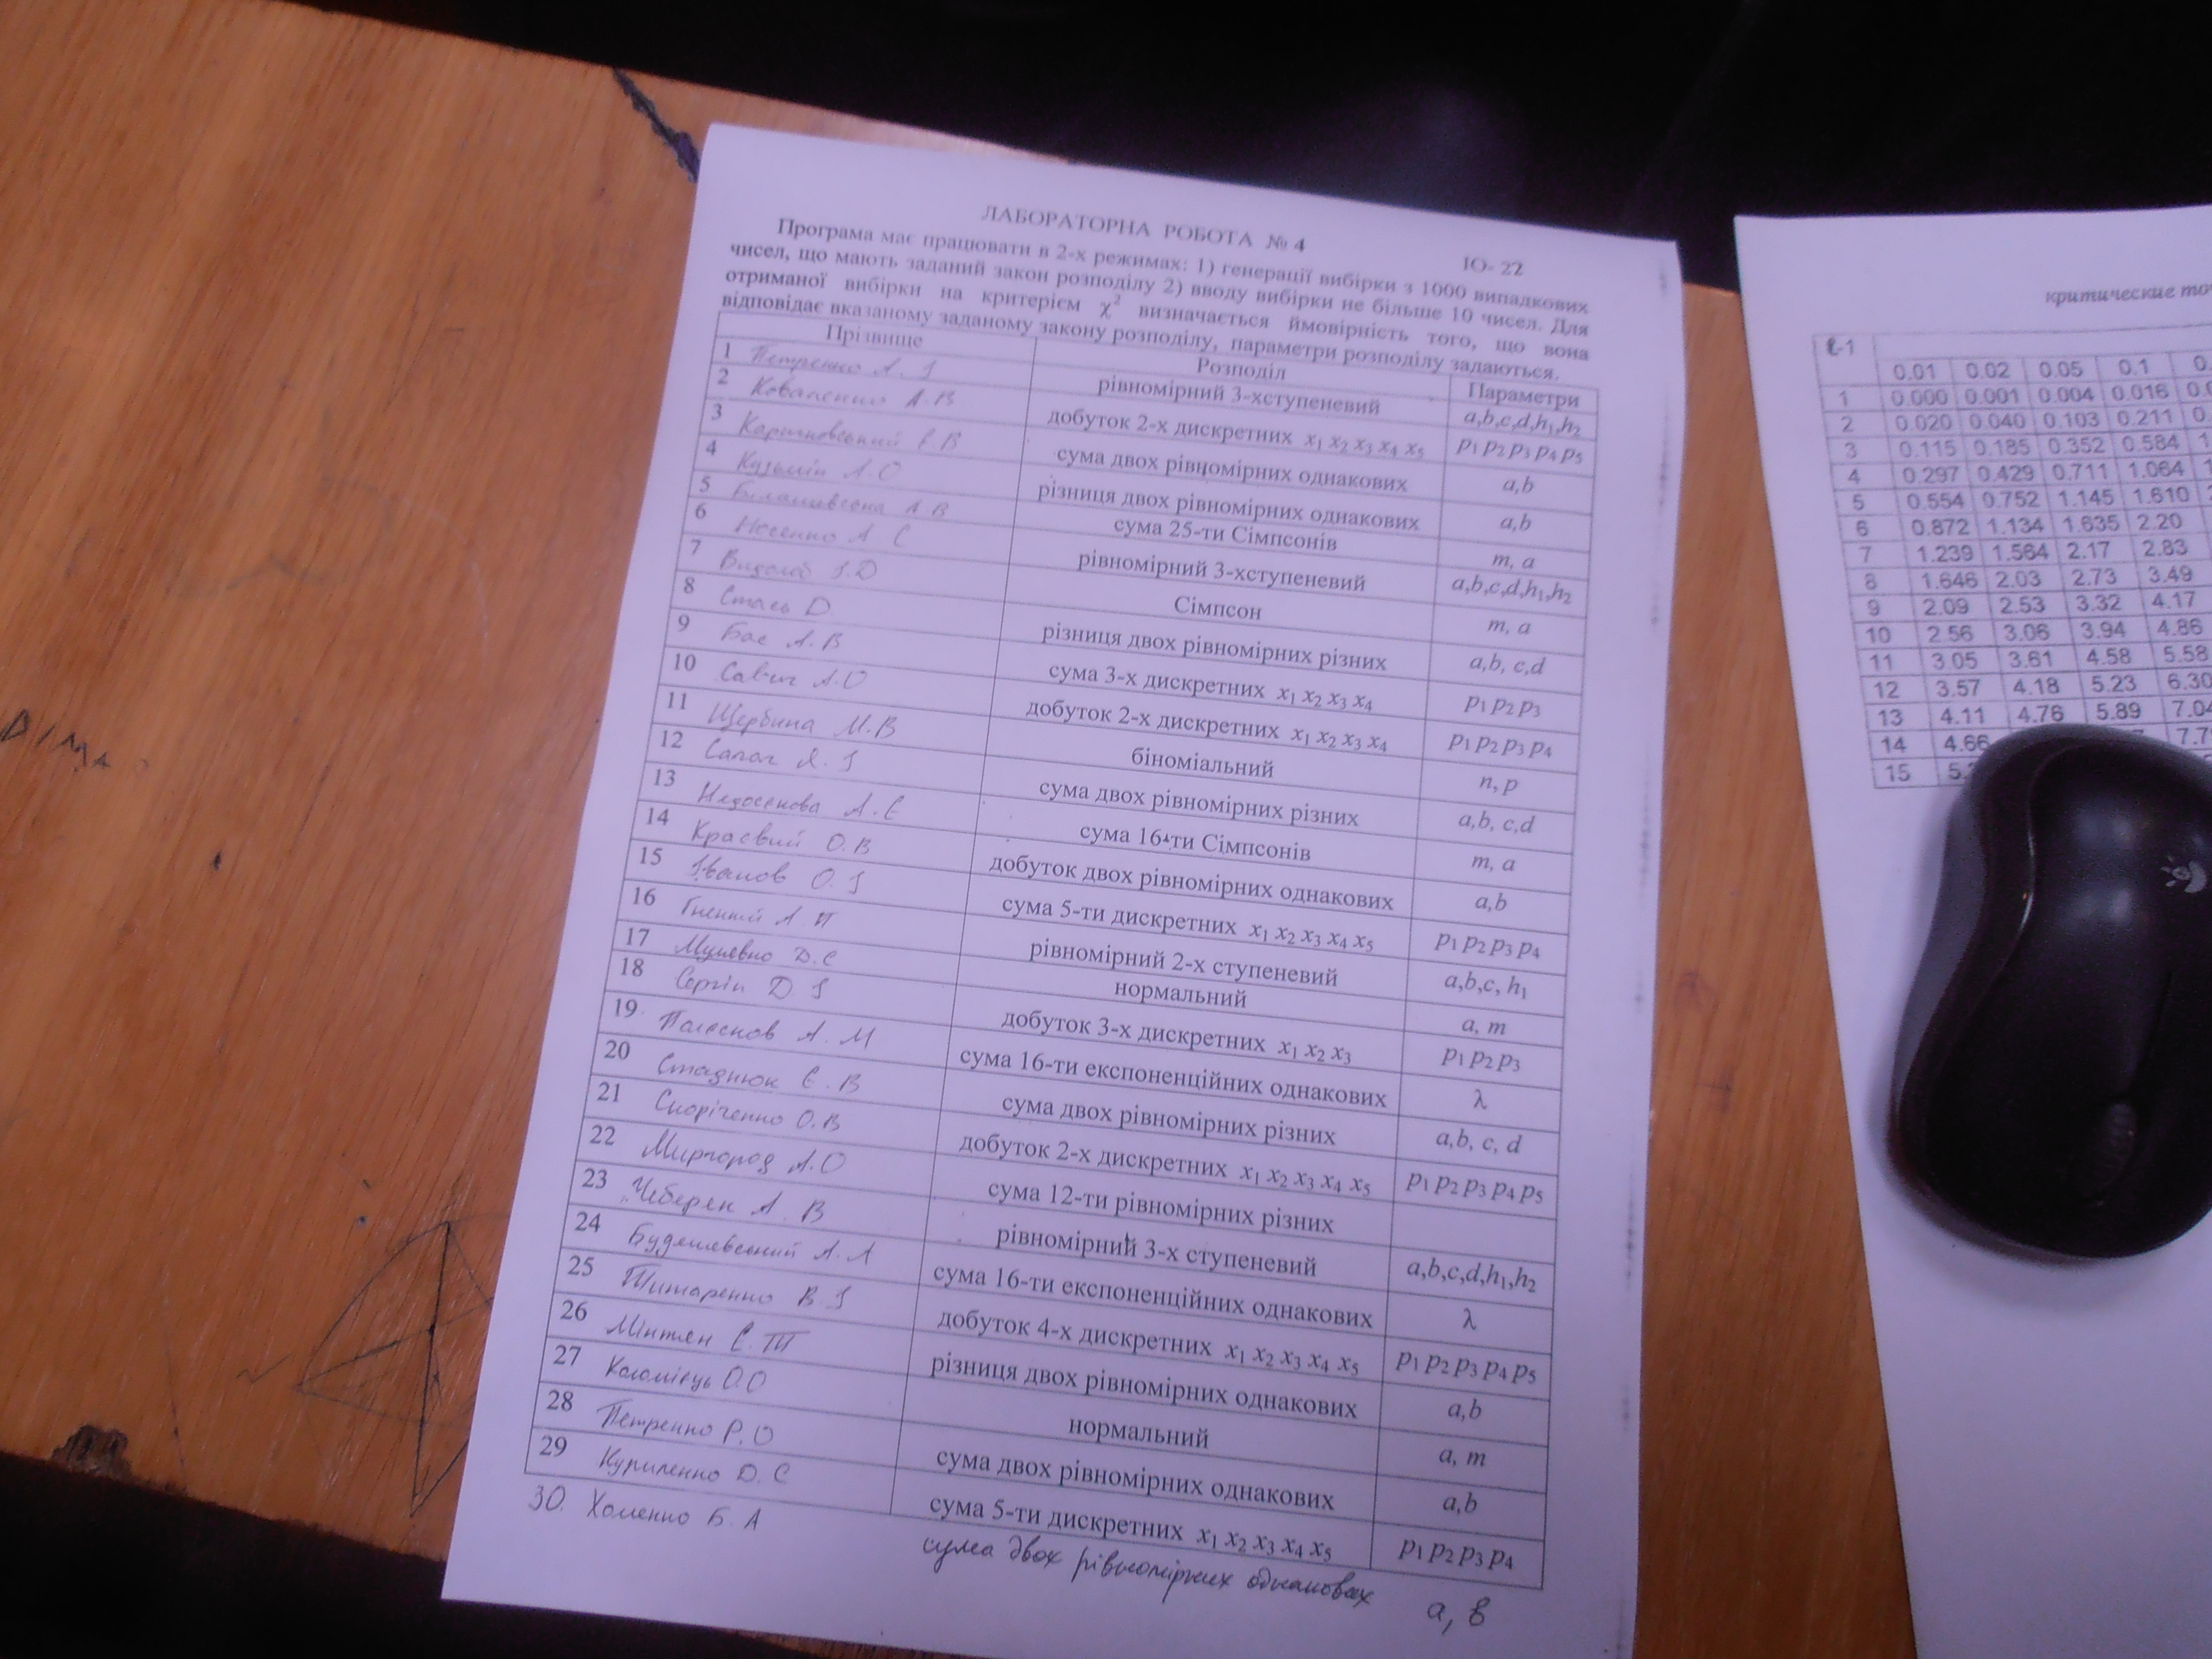 ЛАБОРАТОРНА РОБОТА № 4
ІО- 22
Програма має працювати в 2-х режимах: 1) генерації вибірки з 1000 випадкових
чисел, що мають заданий закон розподілу 2) вводу вибірки не більше 10 чисел. Для
отриманої вибірки на критерієм χ² визначається ймовірність того, що вона
відповідає вказаному заданому закону розподілу, параметри розподілу задаються.
Прізвище Розподіл Параметри
1 Петренко А. І рівномірний 3-хступеневий a,b,c,d,h₁,h₂
2 Коваленко А.В добуток 2-х дискретних x₁ x₂ x₃ x₄ x₅ p₁ p₂ p₃ p₄ p₅
3 сума двох рівномірних однакових a,b
4 Кузьмін А.О різниця двох рівномірних однакових a,b
5 А.В сума 25-ти Сімпсонів m, a
6 Носенко А Є рівномірний 3-хступеневий a,b,c,d,h₁,h₂
7 Сімпсон m, a
8 Стась D різниця двох рівномірних різних a,b, c,d
9 Бас А.В сума 3-х дискретних x₁ x₂ x₃ x₄ p₁ p₂ p₃
10 А.О добуток 2-х дискретних x₁ x₂ x₃ x₄ p₁ p₂ p₃ p₄
11 Щербина М.В біноміальний n, p
12 сума двох рівномірних різних a,b, c,d
13 сума 16-ти Сімпсонів m, a
14 Красвий О.В добуток двох рівномірних однакових a,b
15 Іванов О.І сума 5-ти дискретних x₁ x₂ x₃ x₄ x₅ p₁ p₂ p₃ p₄
16 рівномірний 2-х ступеневий a,b,c, h₁
17 D.C нормальний a, m
18 Сергін D І добуток 3-х дискретних x₁ x₂ x₃ p₁ p₂ p₃
19 А. М сума 16-ти експоненційних однакових λ
20 Стаднюк Є. В сума двох рівномірних різних a,b, c, d
21 О.В добуток 2-х дискретних x₁ x₂ x₃ x₄ x₅ p₁ p₂ p₃ p₄ p₅
22 Миргород А.О сума 12-ти рівномірних різних
23 Чеберяк А. В рівномірний 3-х ступеневий a,b,c,d,h₁,h₂
24 А. Л сума 16-ти експоненційних однакових λ
25 Титаренко В.І добуток 4-х дискретних x₁ x₂ x₃ x₄ x₅ p₁ p₂ p₃ p₄ p₅
26 різниця двох рівномірних однакових a,b
27 Коломієць О.О нормальний a, m
28 Петренко Р.О сума двох рівномірних однакових a,b
29 Куриленко D. C сума 5-ти дискретних x₁ x₂ x₃ x₄ x₅ p₁ p₂ p₃ p₄
30. Хоменко Б. А сума двох рівномірних однакових а, в
критические
ℓ-1
0.01 0.02 0.05 0.1
1 0.000 0.001 0.004 0.016
2 0.020 0.040 0.103 0.211
3 0.115 0.185 0.352 0.584
4 0.297 0.429 0.711 1.064
5 0.554 0.752 1.145 1.610
6 0.872 1.134 1.635 2.20
7 1.239 1.564 2.17 2.83
8 1.646 2.03 2.73 3.49
9 2.09 2.53 3.32 4.17
10 2.56 3.06 3.94 4.86
11 3.05 3.61 4.58 5.58
12 3.57 4.18 5.23 6.30
13 4.11 4.76 5.89 7.04
14 4.66
15
DIMA